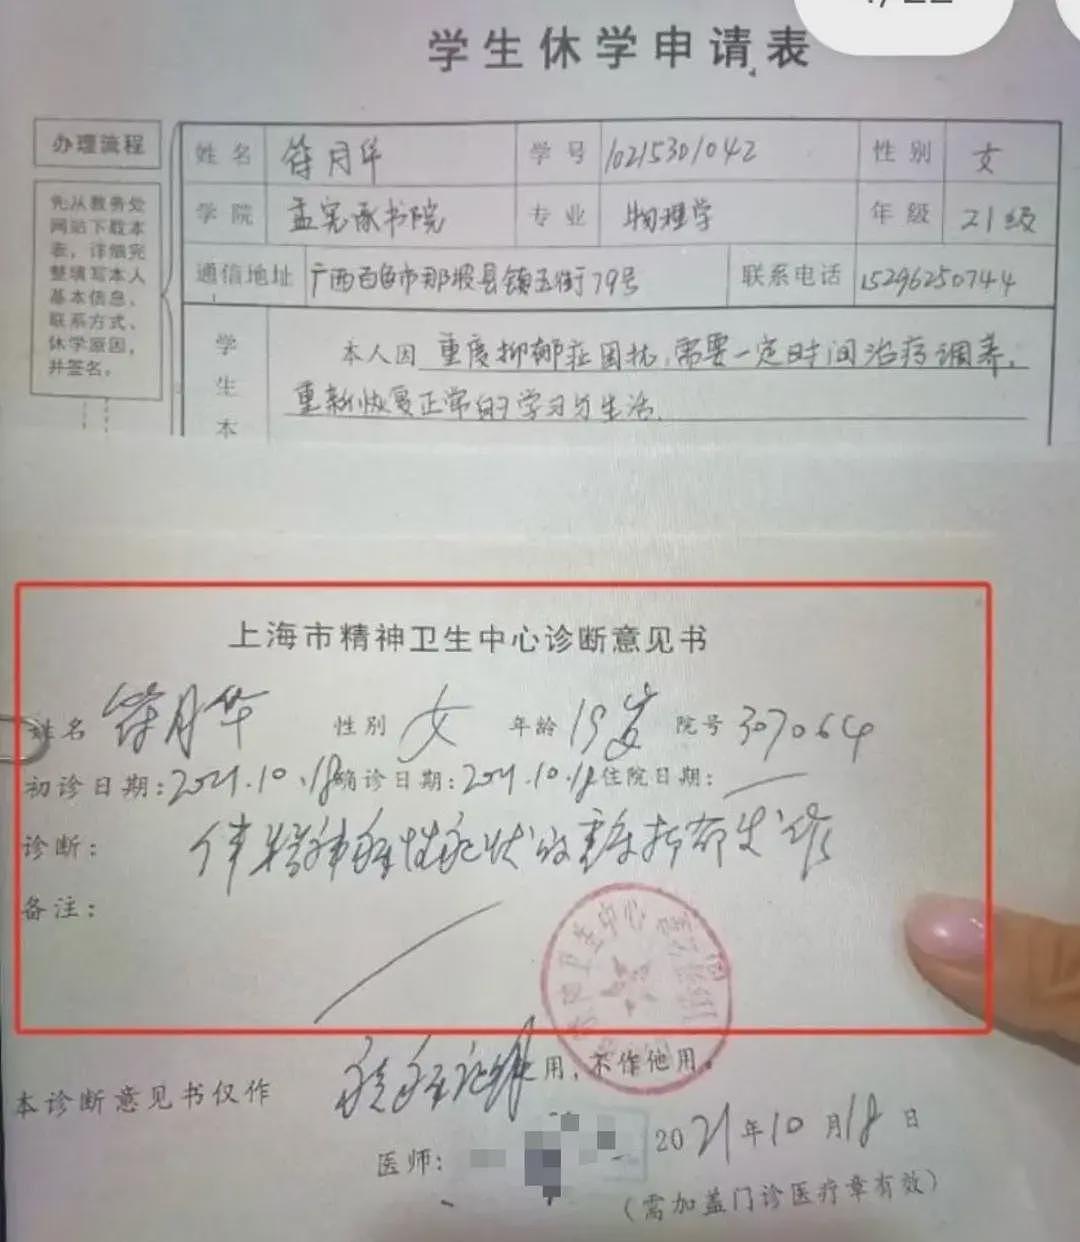 学生休学申请表
办理流程
先从教务处
网站下载本
表，详细完
整填写本人
基本信息、
联系方式、
休学原因，
并签名。
姓名 符月华 学号 10215301042 性别 女
学院 孟宪承书院 专业 物理学 年级 21级
通信地址 广西百色市那坡县镇玉街79号 联系电话 15296250744
学
生
本
本人因 重度抑郁症困扰，需要一定时间治疗调养，
重新恢复正常的学习与生活.
上海市精神卫生中心诊断意见书
姓名 符月华 性别 女 年龄 19岁 院号 307064
初诊日期：2021.10.18 确诊日期：2021.10.18 住院日期：
诊断： 伴精神病性症状的重度抑郁发作
备注：
卫生中心
本诊断意见书仅作 用，不作他用。
医师：
2021年10月18日
（需加盖门诊医疗章有效）